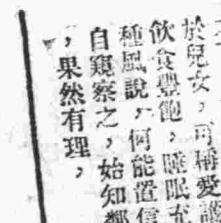 於兒女，可稱愛護
飲食豐飽，睡眠充
種風說，何能置信
自窺察之，始知鄉
，果然有理，